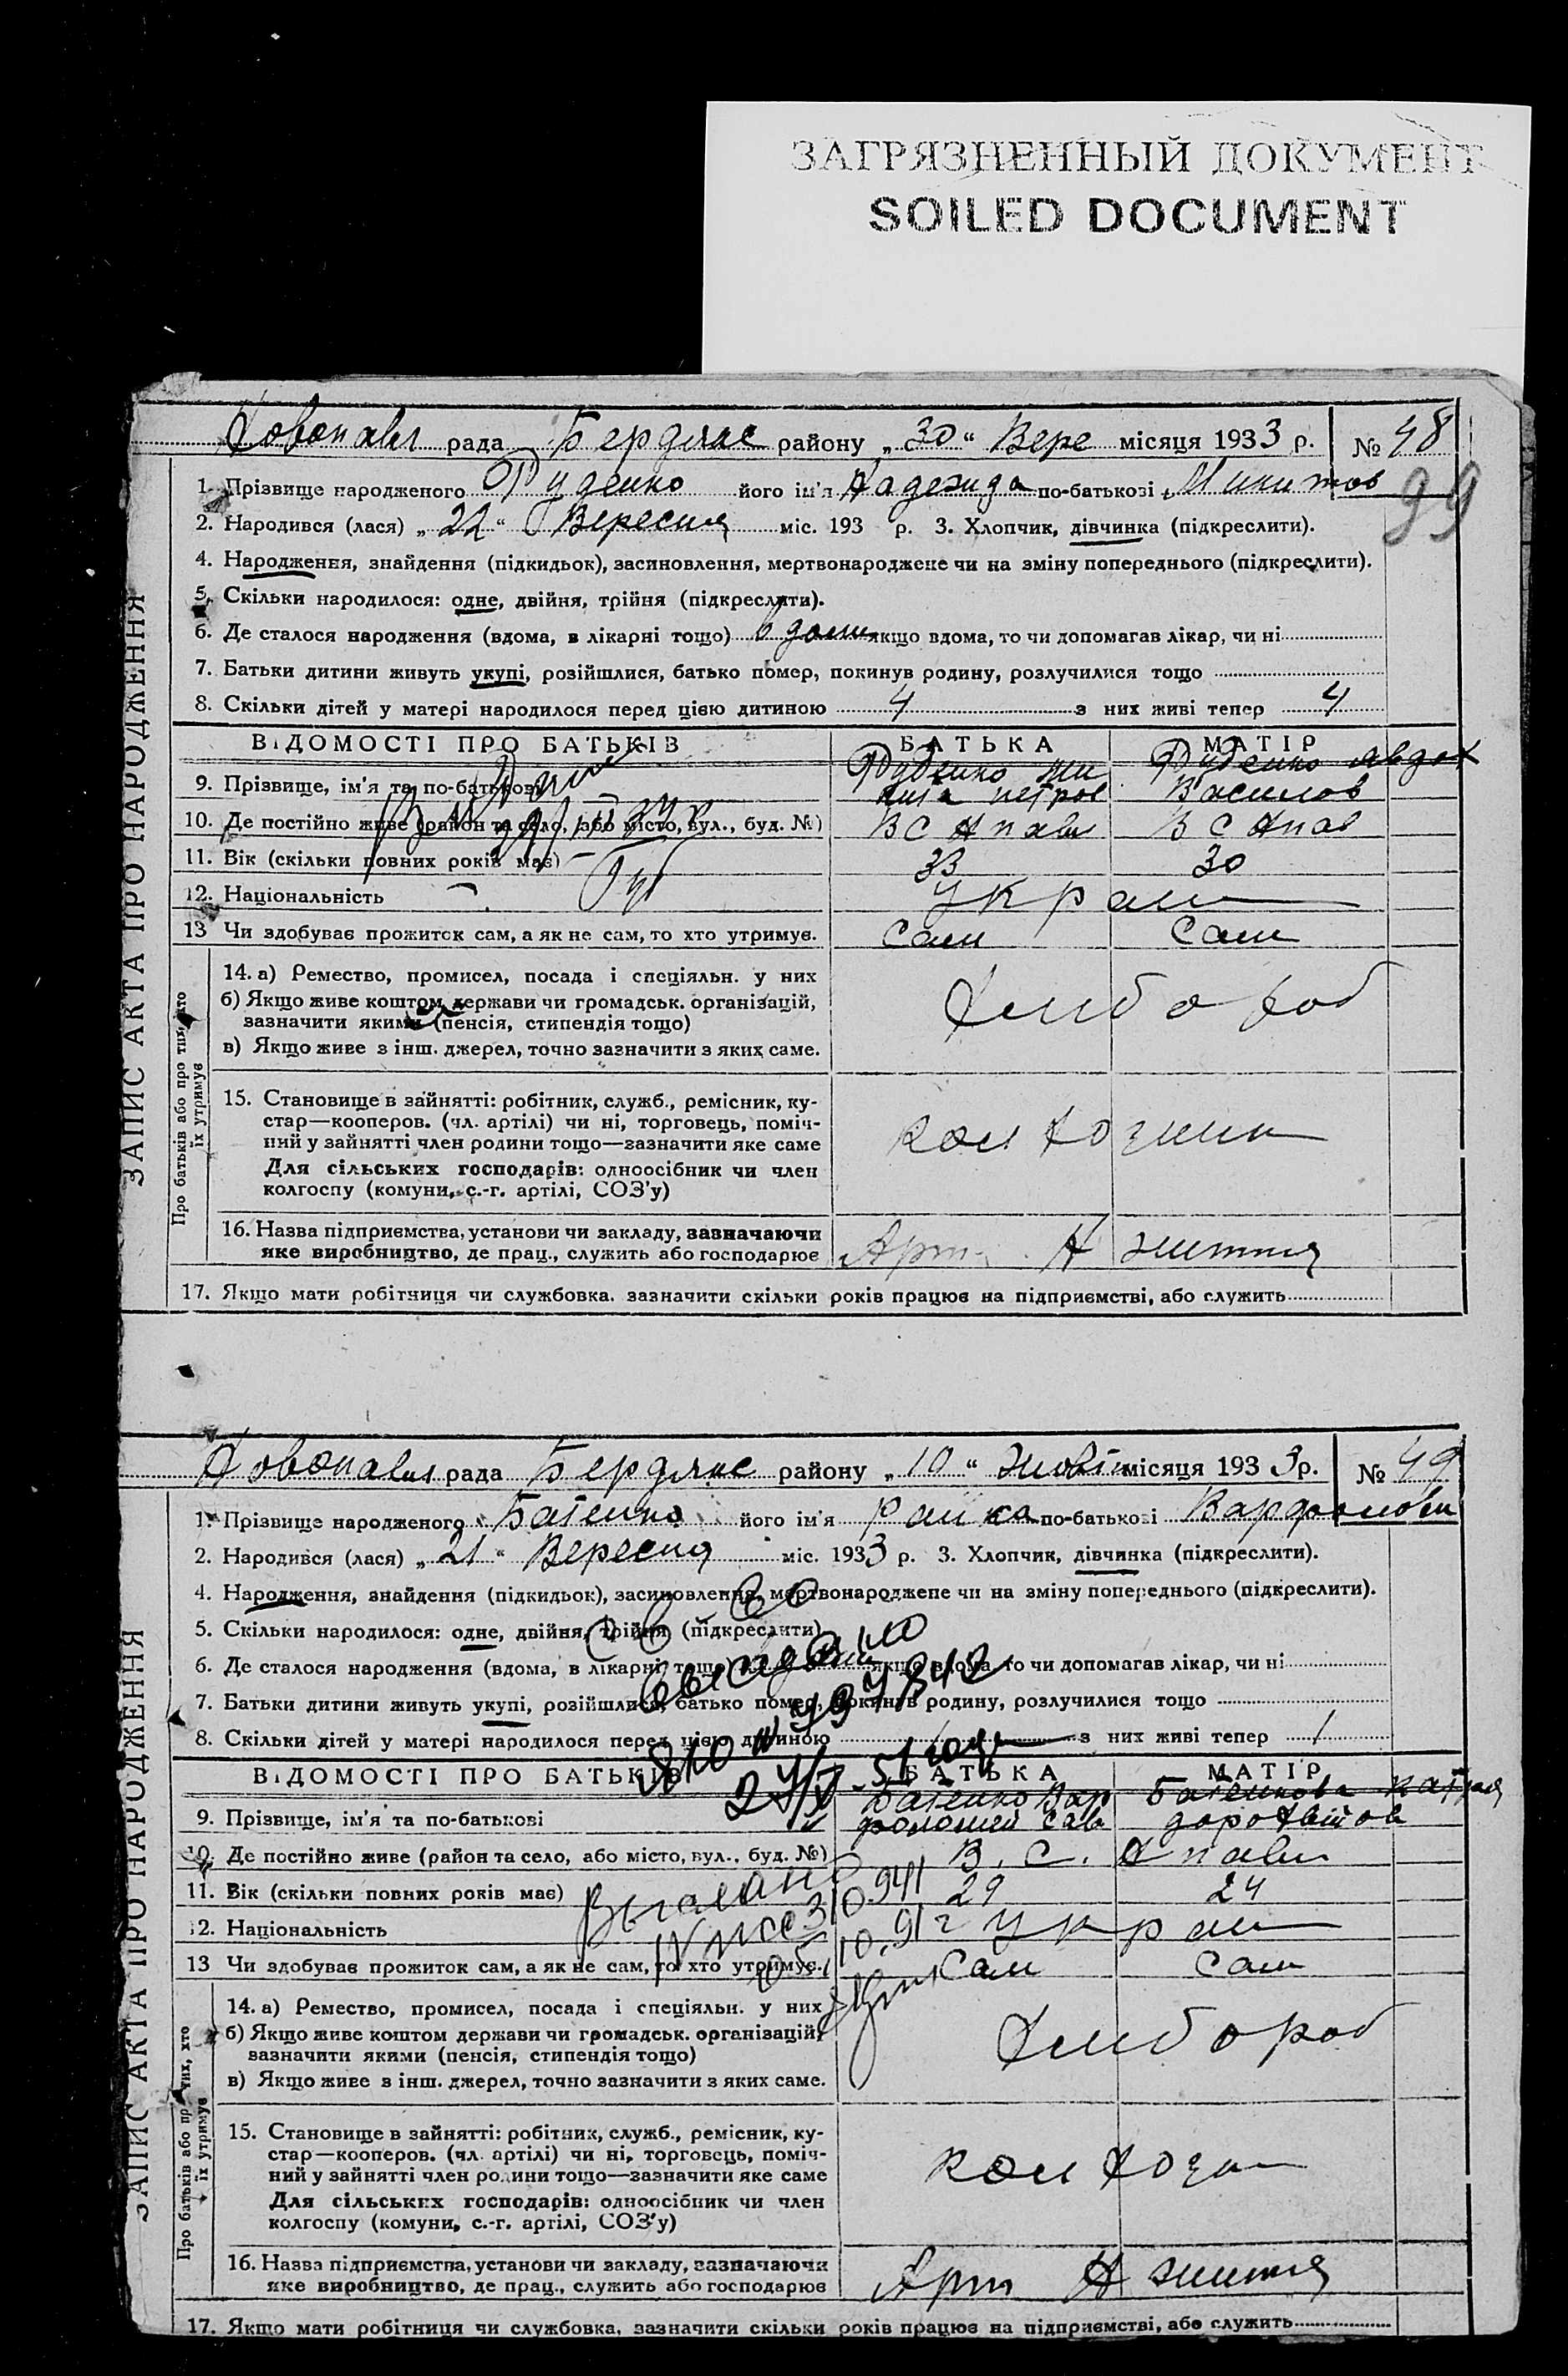 ЗАГРЯЗНЕННЫЙ ДОКУМЕНТ
SOILED DOCUMENT
Новопавл рада Бердянс районy „30“ Вере місяця 1933 р. № 48
99
1. Прізвище народженого Руденко його ім'я Надежда по-батькові Микитов
2. Народився (лася) „22“ Вересня міс. 193 р. 3. Хлопчик, дівчинка (підкреслити).
4. Народження, знайдення (підкидьок), засиновлення, мертвонароджене чи на зміну попереднього (підкреслити).
5. Скільки народилося: одне, двійня, трійня (підкреслити).
6. Де сталося народження (вдома, в лікарні тощо) вдома якщо вдома, то чи допомагав лікар, чи ні
7. Батьки дитини живуть укупі, розійшлися, батько помер, покинув родину, розлучилися тощо
8. Скільки дітей у матері народилося перед цією дитиною 4 з них живі тепер 4
ВІДОМОСТІ ПРО БАТЬКІВ БАТЬКА МАТІР
9. Прізвище, ім'я та по-батькові Руденко Ми кита петров Руденко Явдох Василов
10. Де постійно живе (район та село, або місто, вул., буд. №) В С Н павл В С Н пав
11. Вік (скільки повних років має) 33 30
12. Національність Украин
13 Чи здобуває прожиток сам, а як не сам, то хто утримує. Сам Сам
14. а) Ремество, промисел, посада і спеціяльн. у них
б) Якщо живе коштом держави чи громадськ. організацій,
зазначити якими (пенсія, стипендія тощо)
в) Якщо живе з інш. джерел, точно зазначити з яких саме.
Хлибороб
15. Становище в зайнятті: робітник, служб., ремісник, ку-
стар—кооперов. (чл. артілі) чи ні, торговець, поміч-
ний у зайнятті член родини тощо—зазначити яке саме
Для сільських господарів: одноосібник чи член
колгоспу (комуни, с.-г. артілі, СОЗ'у)
16. Назва підприємства, установи чи закладу, зазначаючи
яке виробництво, де прац., служить або господарює Арт Н життя
17. Якщо мати робітниця чи службовка, зазначити скільки років працює на підприємстві, або служить
ЗАПИС АКТА ПРО НАРОДЖЕННЯ
Про батьків або про тих, хто
їх утримує
Новопавл рада Бердянс району „10“ Жовтн місяця 1933 р. № 49
1. Прізвище народженого Батенко його ім'я Раиса по-батькові Варфоломів
2. Народився (лася) „21“ Вересня міс. 1933 р. 3. Хлопчик, дівчинка (підкреслити).
4. Народження, знайдення (підкидьок), засиновлення, мертвонароджене чи на зміну попереднього (підкреслити).
5. Скільки народилося: одне, двійня, трійня (підкреслити)
6. Де сталося народження (вдома, в лікарні тощо) якщо вдома, то чи допомагав лікар, чи ні
7. Батьки дитини живуть укупі, розійшлися, батько помер, покинув родину, розлучилися тощо
8. Скільки дітей у матері народилося перед цією дитиною 1 з них живі тепер 1
ВІДОМОСТІ ПРО БАТЬКІВ БАТЬКА МАТІР
9. Прізвище, ім'я та по-батькові Батенко Вар фоломий Сав Батенкова
10. Де постійно живе (район та село, або місто, вул., буд. №) В. С. Н павл
11. Вік (скільки повних років має) 29 24
12. Національність Украин
13 Чи здобуває прожиток сам, а як не сам, то хто утримує. Сам Сам
14. а) Ремество, промисел, посада і спеціяльн. у них
б) Якщо живе коштом держави чи громадськ. організацій,
зазначити якими (пенсія, стипендія тощо)
в) Якщо живе з інш. джерел, точно зазначити з яких саме.
Хлибороб
15. Становище в зайнятті: робітник, служб., ремісник, ку-
стар—кооперов. (чл. артілі) чи ні, торговець, поміч-
ний у зайнятті член родини тощо—зазначити яке саме
Для сільських господарів: одноосібник чи член
колгоспу (комуни, с.-г. артілі, СОЗ'у)
16. Назва підприємства, установи чи закладу, зазначаючи
яке виробництво, де прац., служить або господарює Арт Н життя
17. Якщо мати робітниця чи службовка, зазначити скільки років працює на підприємстві, або служить
ЗАПИС АКТА ПРО НАРОДЖЕННЯ
Про батьків або пр тих, хто
їх утримує